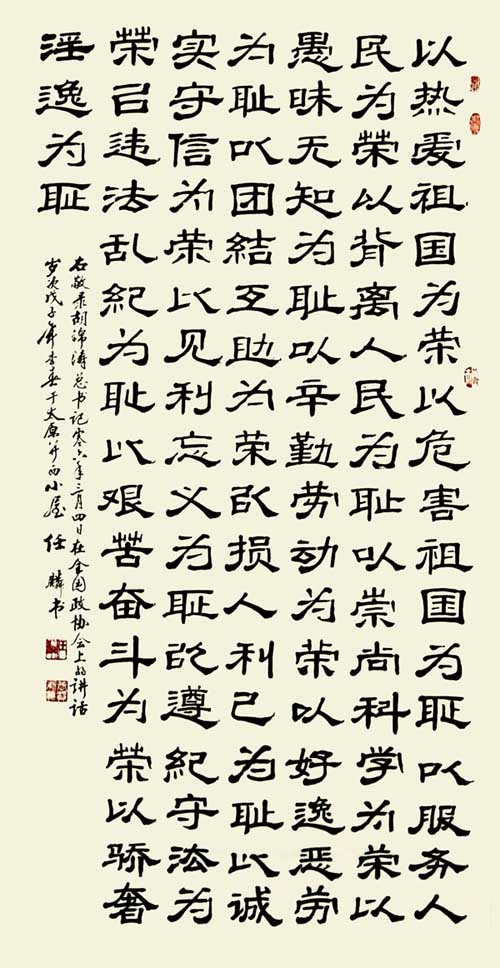 以热爱祖国为荣以危害祖国为耻以服务人
民为荣以背离人民为耻以崇尚科学为荣以
愚昧无知为耻以辛勤劳动为荣以好逸恶劳
为耻以团結互助为荣以损人利己为耻以诚
实守信为荣以见利忘义为耻以遵紀守法为
荣以违法乱紀为耻以艰苦奋斗为荣以骄奢
淫逸为耻
右敬录胡锦涛总书记零六年三月四日在全国政协会上的讲话
岁次戊子年季春于太原并西小屋 任麟书